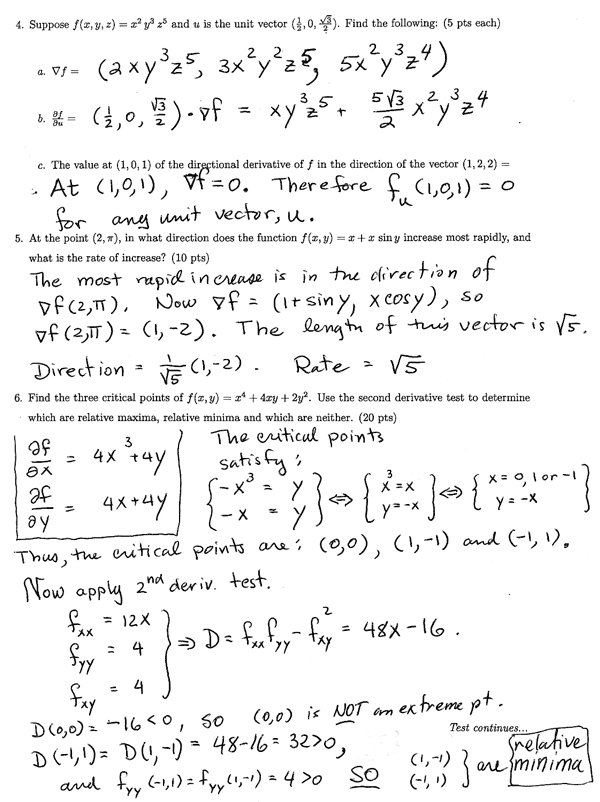 4. Suppose f(x, y, z) = x² y³ z⁵ and u is the unit vector (1/2, 0, √3/2). Find the following: (5 pts each)
a. ∇f = (2xy³z⁵, 3x²y²z⁵, 5x²y³z⁴)
b. ∂f/∂u = (1/2, 0, √3/2) · ∇f = xy³z⁵ + 5√3/2 x²y³z⁴
c. The value at (1, 0, 1) of the directional derivative of f in the direction of the vector (1, 2, 2) =
At (1,0,1), ∇f = 0. Therefore f_u(1,0,1) = 0
for any unit vector, u.
5. At the point (2, π), in what direction does the function f(x, y) = x + x sin y increase most rapidly, and
what is the rate of increase? (10 pts)
The most rapid increase is in the direction of
∇f(2,π). Now ∇f = (1+sin y, x cos y), so
∇f(2,π) = (1,-2). The length of this vector is √5.
Direction = 1/√5 (1,-2). Rate = √5
6. Find the three critical points of f(x, y) = x⁴ + 4xy + 2y². Use the second derivative test to determine
which are relative maxima, relative minima and which are neither. (20 pts)
∂f/∂x = 4x³+4y
∂f/∂y = 4x+4y
The critical points
satisfy:
{-x³ = y, -x = y} ⇔ {x³ = x, y = -x} ⇔ {x = 0, 1 or -1, y = -x
Thus, the critical points are: (0,0), (1,-1) and (-1,1).
Now apply 2nd deriv. test.
f_xx = 12x
f_yy = 4
f_xy = 4
} ⇒ D = f_xx f_yy - f_xy² = 48x - 16.
D(0,0) = -16 < 0, so (0,0) is NOT an extreme pt.
Test continues...
D(-1,1) = D(1,-1) = 48-16 = 32 > 0,
and f_yy(-1,1) = f_yy(1,-1) = 4 > 0 SO (1,-1) (-1,1) } are relative minima